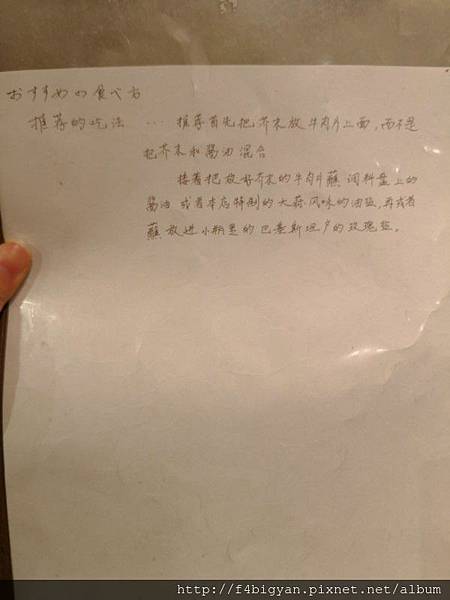 おすすめの食べ方
推荐的吃法 … 推荐首先把芥末放牛肉片上面,而不是
把芥末和酱油混合
接着把放好芥末的牛肉片蘸调料盘上的
酱油 或者本店特制的大蒜风味的油盐,再或者
蘸放进小瓶里的巴基斯坦产的玫瑰盐。
http://f4bigyan.pixnet.net/album